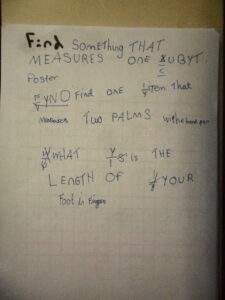 Find SOMETHING THAT
MEASURES ONE XUBYT
Poster
FYND Find ONE item That
Measures TWO PALMS with
WHAT is THE
LENGTH OF YOUR
Foot in Finger